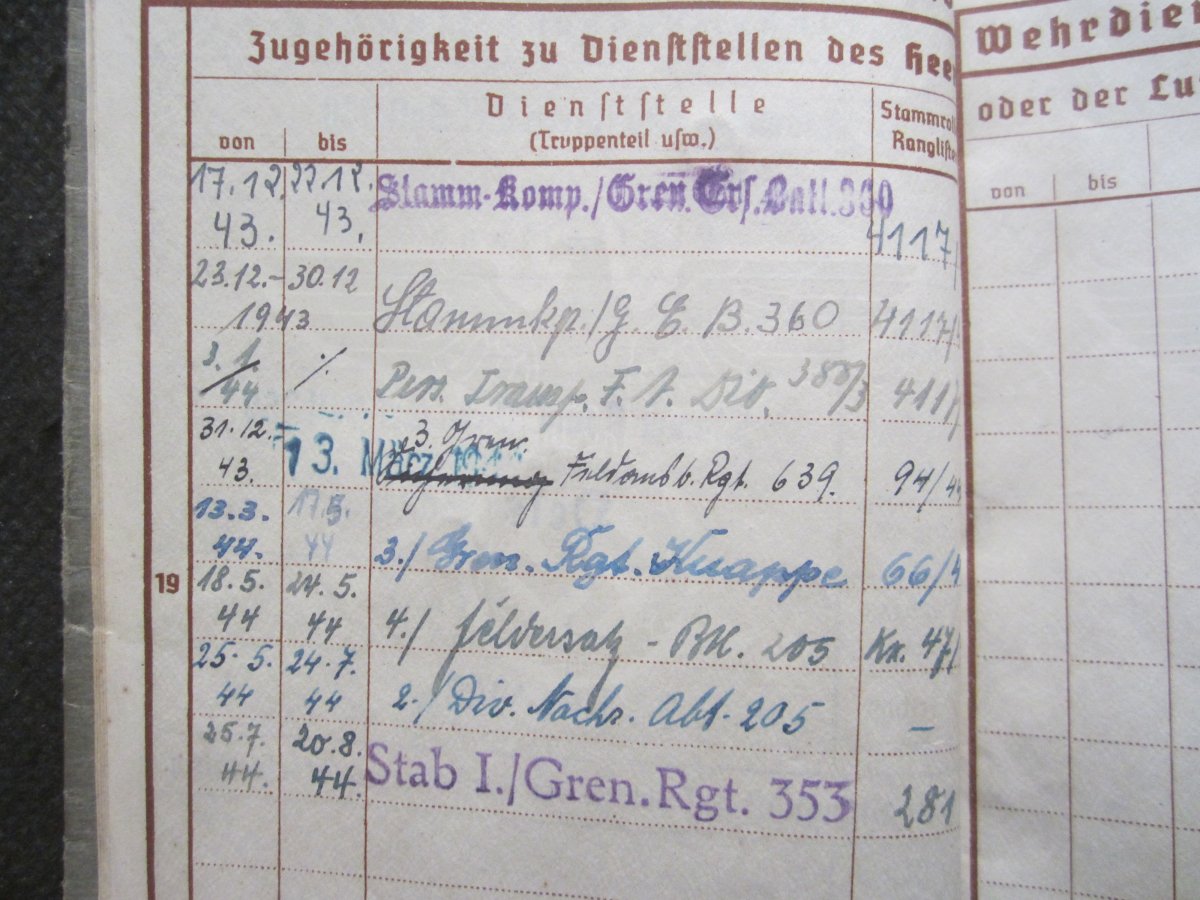 Zugehörigkeit zu Dienststellen des Hee
von bis Dienststelle Stammrol
(Truppenteil usw.) Rangliste
17.12. 22.12. Stamm-Komp./Gren. Ers. Batl. 360
43. 43. 4117/
23.12.- 30.12
1943 Stammkp./G. E. B. 360 4117/
3.1. ./.
44 Pers. Transp. F. A. Div. 4117/
31.12. 13. März 3. Gren.
43. Feldausb. Rgt. 639. 94/44
13.3. 17.5.
44. 44 3./ Gren. Rgt. Knappe 66/4
19
18.5. 24.5.
44 44 4./ Feldersatz - Btl. 205 Kr. 47/
25.5. 24.7.
44 44 2./ Div. Nachr. Abt. 205 –
25.7. 20.8.
44. 44. Stab I./Gren.Rgt. 353 281
Wehrdien
oder der Lu
von bis